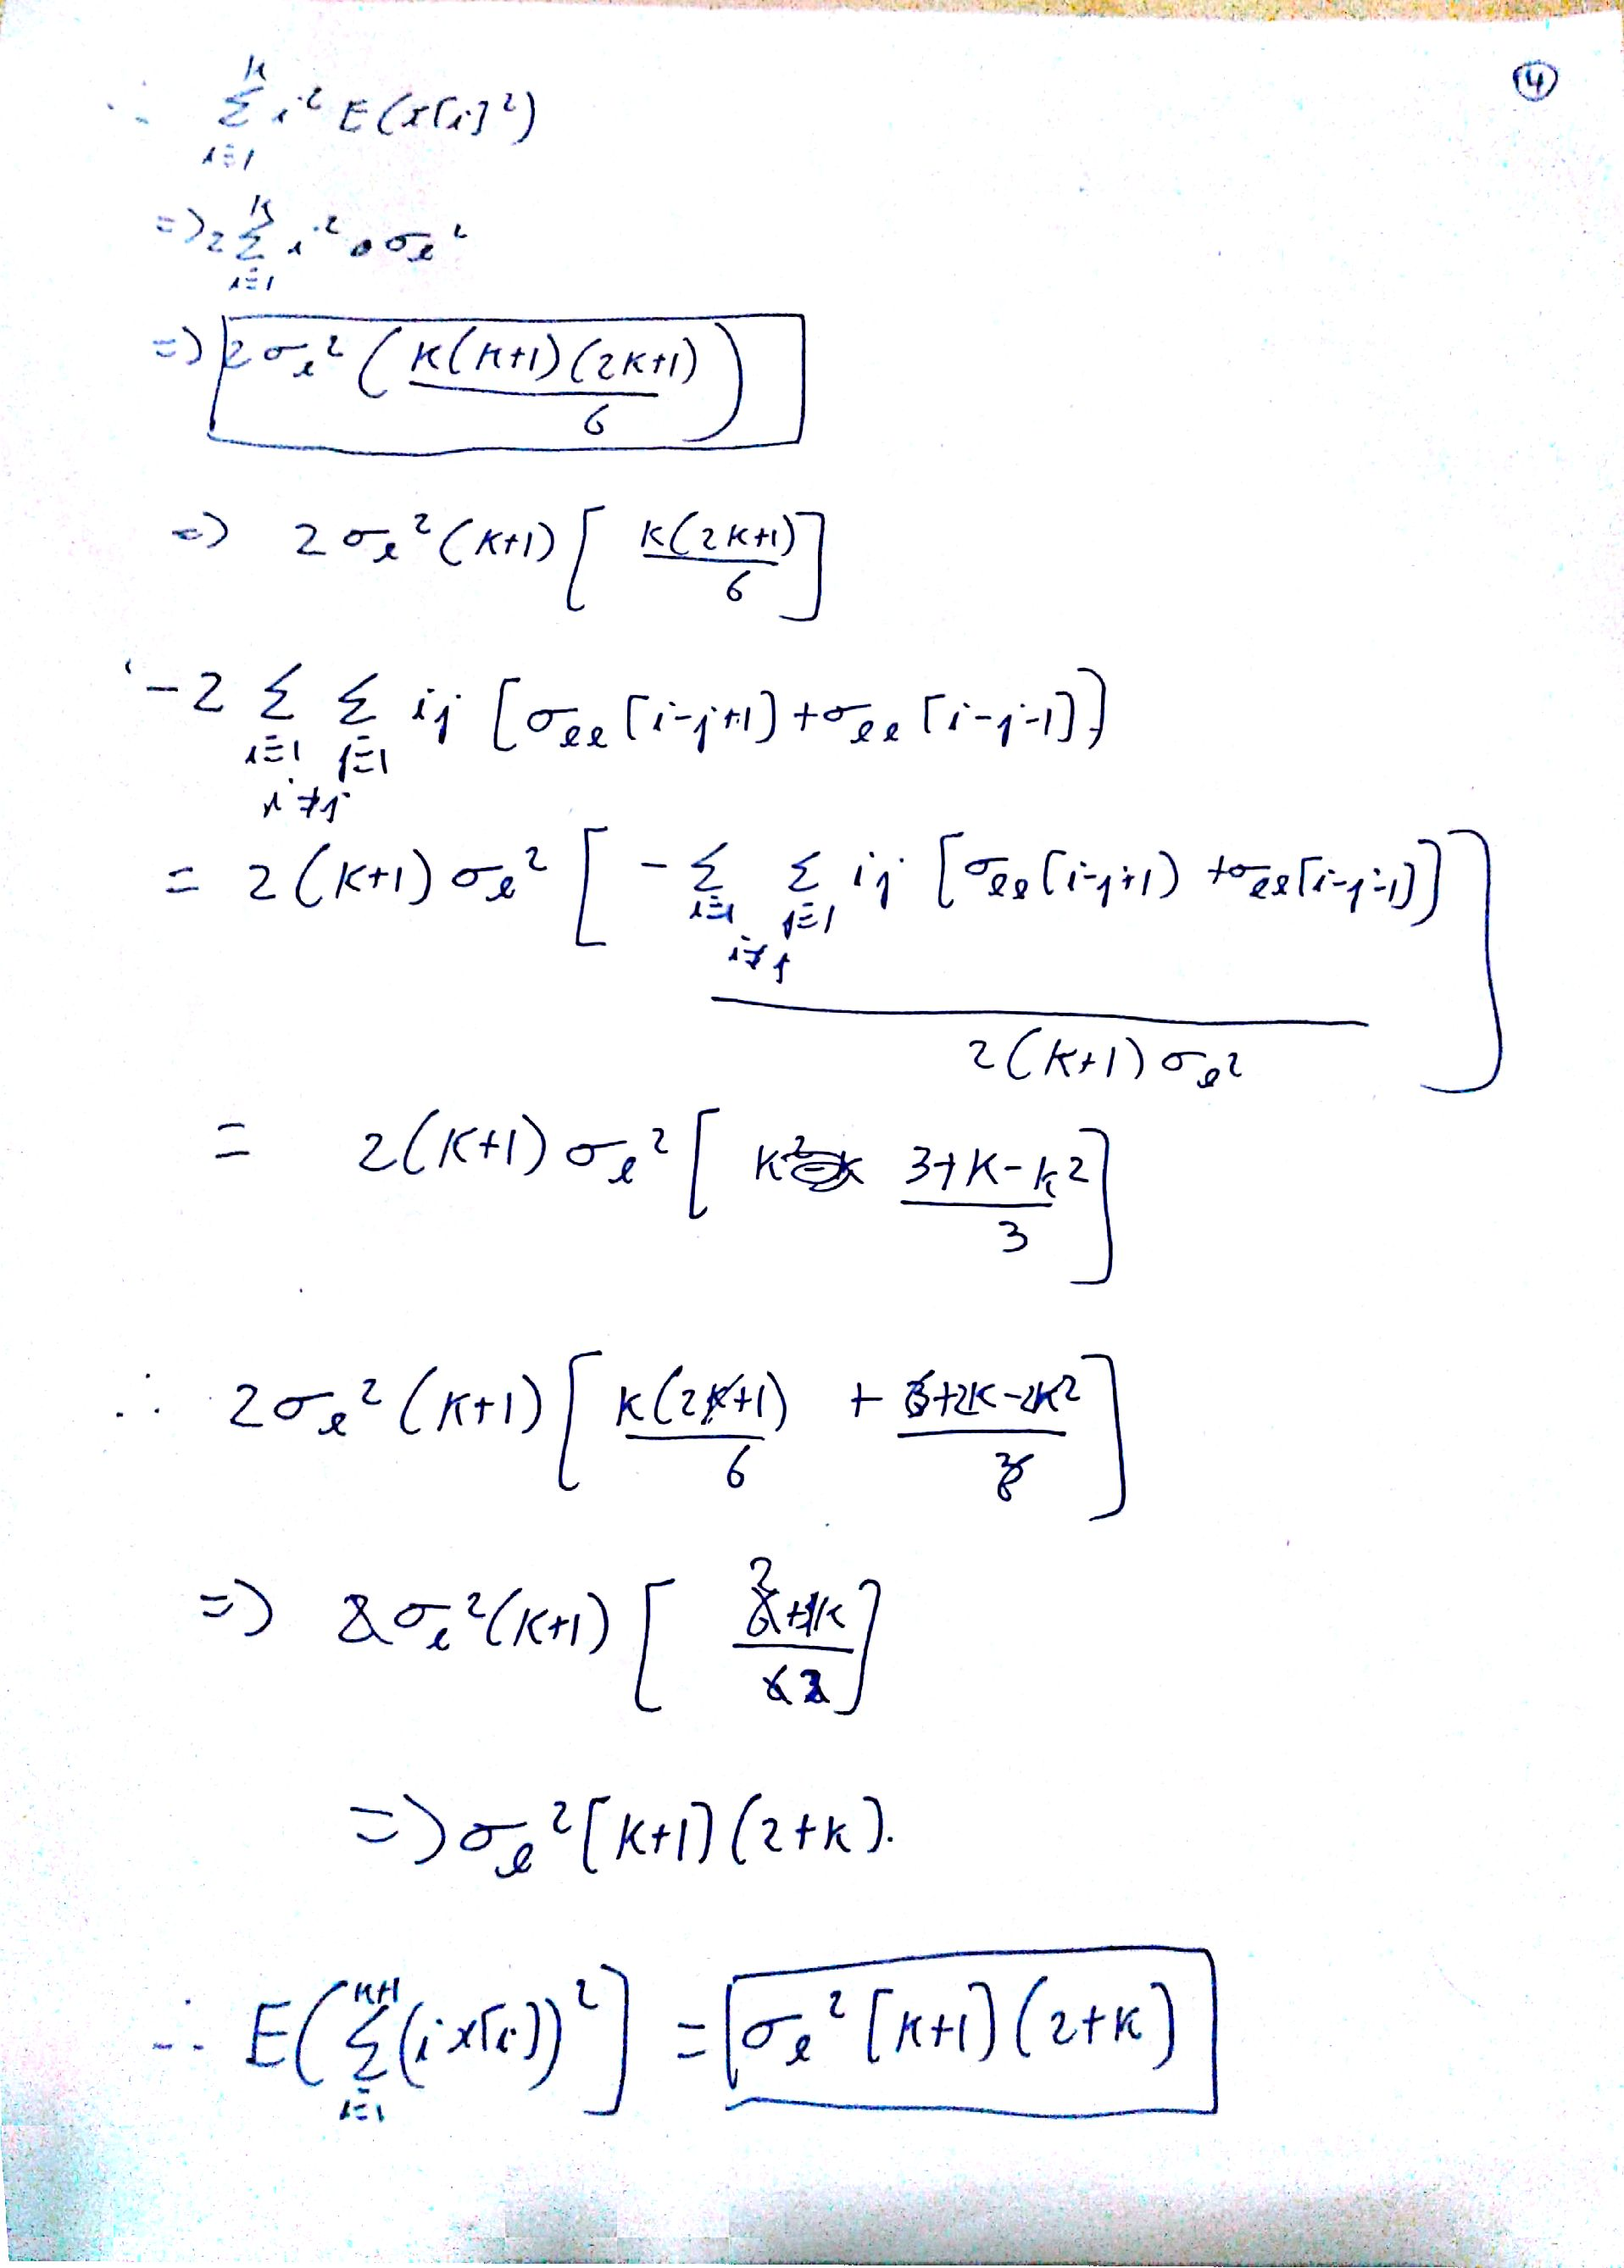 ④
∴ Σ_{i=1}^{K} i² E(x[i]²)
=> 2 Σ_{i=1}^{K} i² • σ_e²
=> 2σ_e² (K(K+1)(2K+1)/6)
=> 2σ_e²(K+1) [K(2K+1)/6]
-2 Σ_{i=1} Σ_{j=1} ij [σ_ee[i-j+1] + σ_ee[i-j-1]]
i≠j
= 2(K+1)σ_e² [-Σ_{i=1} Σ_{j=1} ij [σ_ee[i-j+1] + σ_ee[i-j-1]]
i≠j
2(K+1)σ_e² ]
= 2(K+1)σ_e² [3+K-K²/3]
∴ 2σ_e²(K+1) [K(2K+1)/6 + 6+2K-2K²/6]
=> 2σ_e²(K+1) [2+K/2]
=> σ_e²[K+1](2+K).
∴ E(Σ_{i=1}^{K+1}(i x[i])²] = σ_e²[K+1)(2+K)